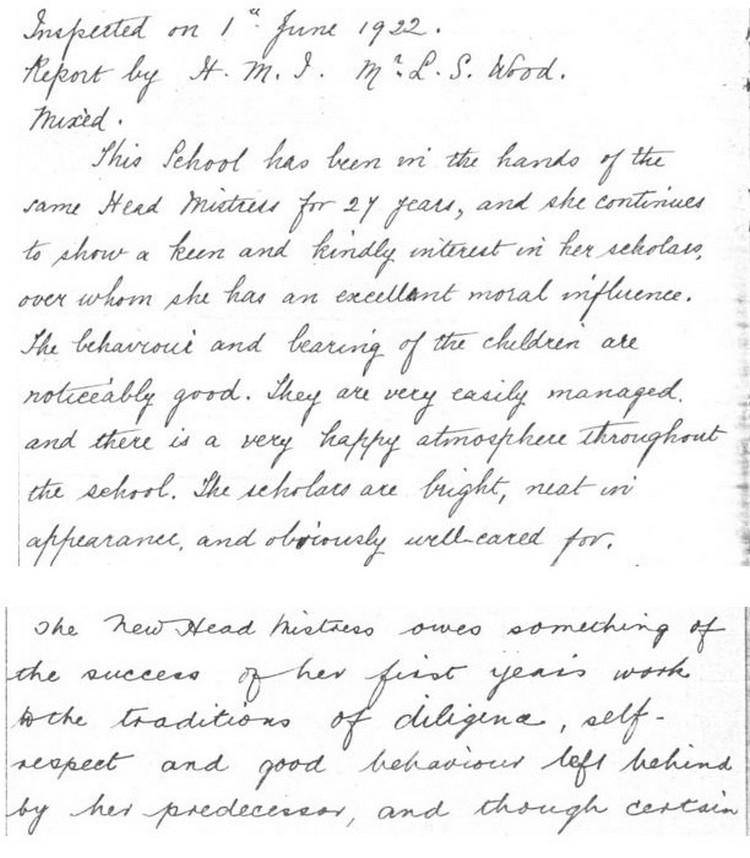 Inspected on 1st June 1922.
Report by H. M. I. Mr. L. S. Wood.
Mixed.
This School has been in the hands of the
same Head Mistress for 27 years, and she continues
to show a keen and kindly interest in her scholars,
over whom she has an excellent moral influence.
The behaviour and bearing of the children are
noticeably good. They are very easily managed,
and there is a very happy atmosphere throughout
the school. The scholars are bright, neat in
appearance, and obviously well-cared for.
The New Head Mistress owes something of
the success of her first years work
to the traditions of diligence, self-
respect and good behaviour left behind
by her predecessor, and though certain